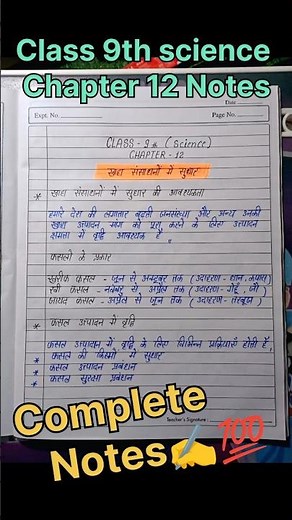 Class 9th science
Chapter 12 Notes
Date
Expt. No.
Page No.
CLASS - 9th (Science)
CHAPTER - 12
खाद्य संसाधनों में सुधार
* खाद्य संसाधनों में सुधार की आवश्यकता
हमारे देश की लगातार बढ़ती जनसंख्या और अन्य उनकी
खाद्य उत्पादन मांग को पूरा करने के लिए उत्पादन
क्षमता में वृद्धि आवश्यक है
फसलों के प्रकार
खरीफ फसल - जून से अक्टूबर तक (उदाहरण - धान, कपास)
रबी फसल - नवंबर से अप्रैल तक (उदाहरण - गेहूँ, जौ)
जायद फसल - अप्रैल से जून तक (उदाहरण - तरबूज)
* फसल उत्पादन में वृद्धि
फसल उत्पादन में वृद्धि के लिए विभिन्न प्रक्रियाएँ होती हैं,
* फसल की किस्मों में सुधार
* फसल उत्पादन प्रबंधन
* फसल सुरक्षा प्रबंधन
Complete
Notes✍️💯
Teacher's Signature